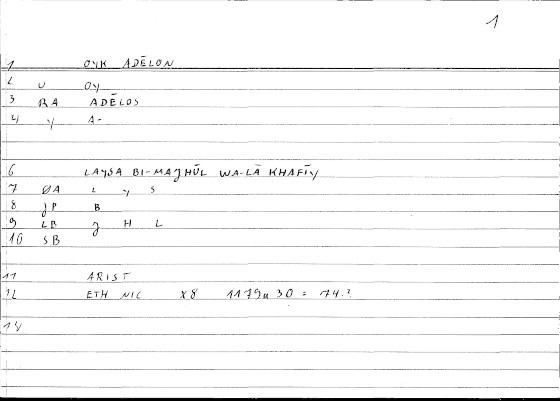 1
1 OYK ADĒLON
2 U OY
3 RA ADĒLOS
4 y A-
6 LAYSA BI-MAJHŪL WA-LĀ KHAFĪY
7 ØA L y S
8 JP B
9 LB J H L
10 SB
11 ARIST
12 ETH NIC X8 1179a 30 = 74.2
14